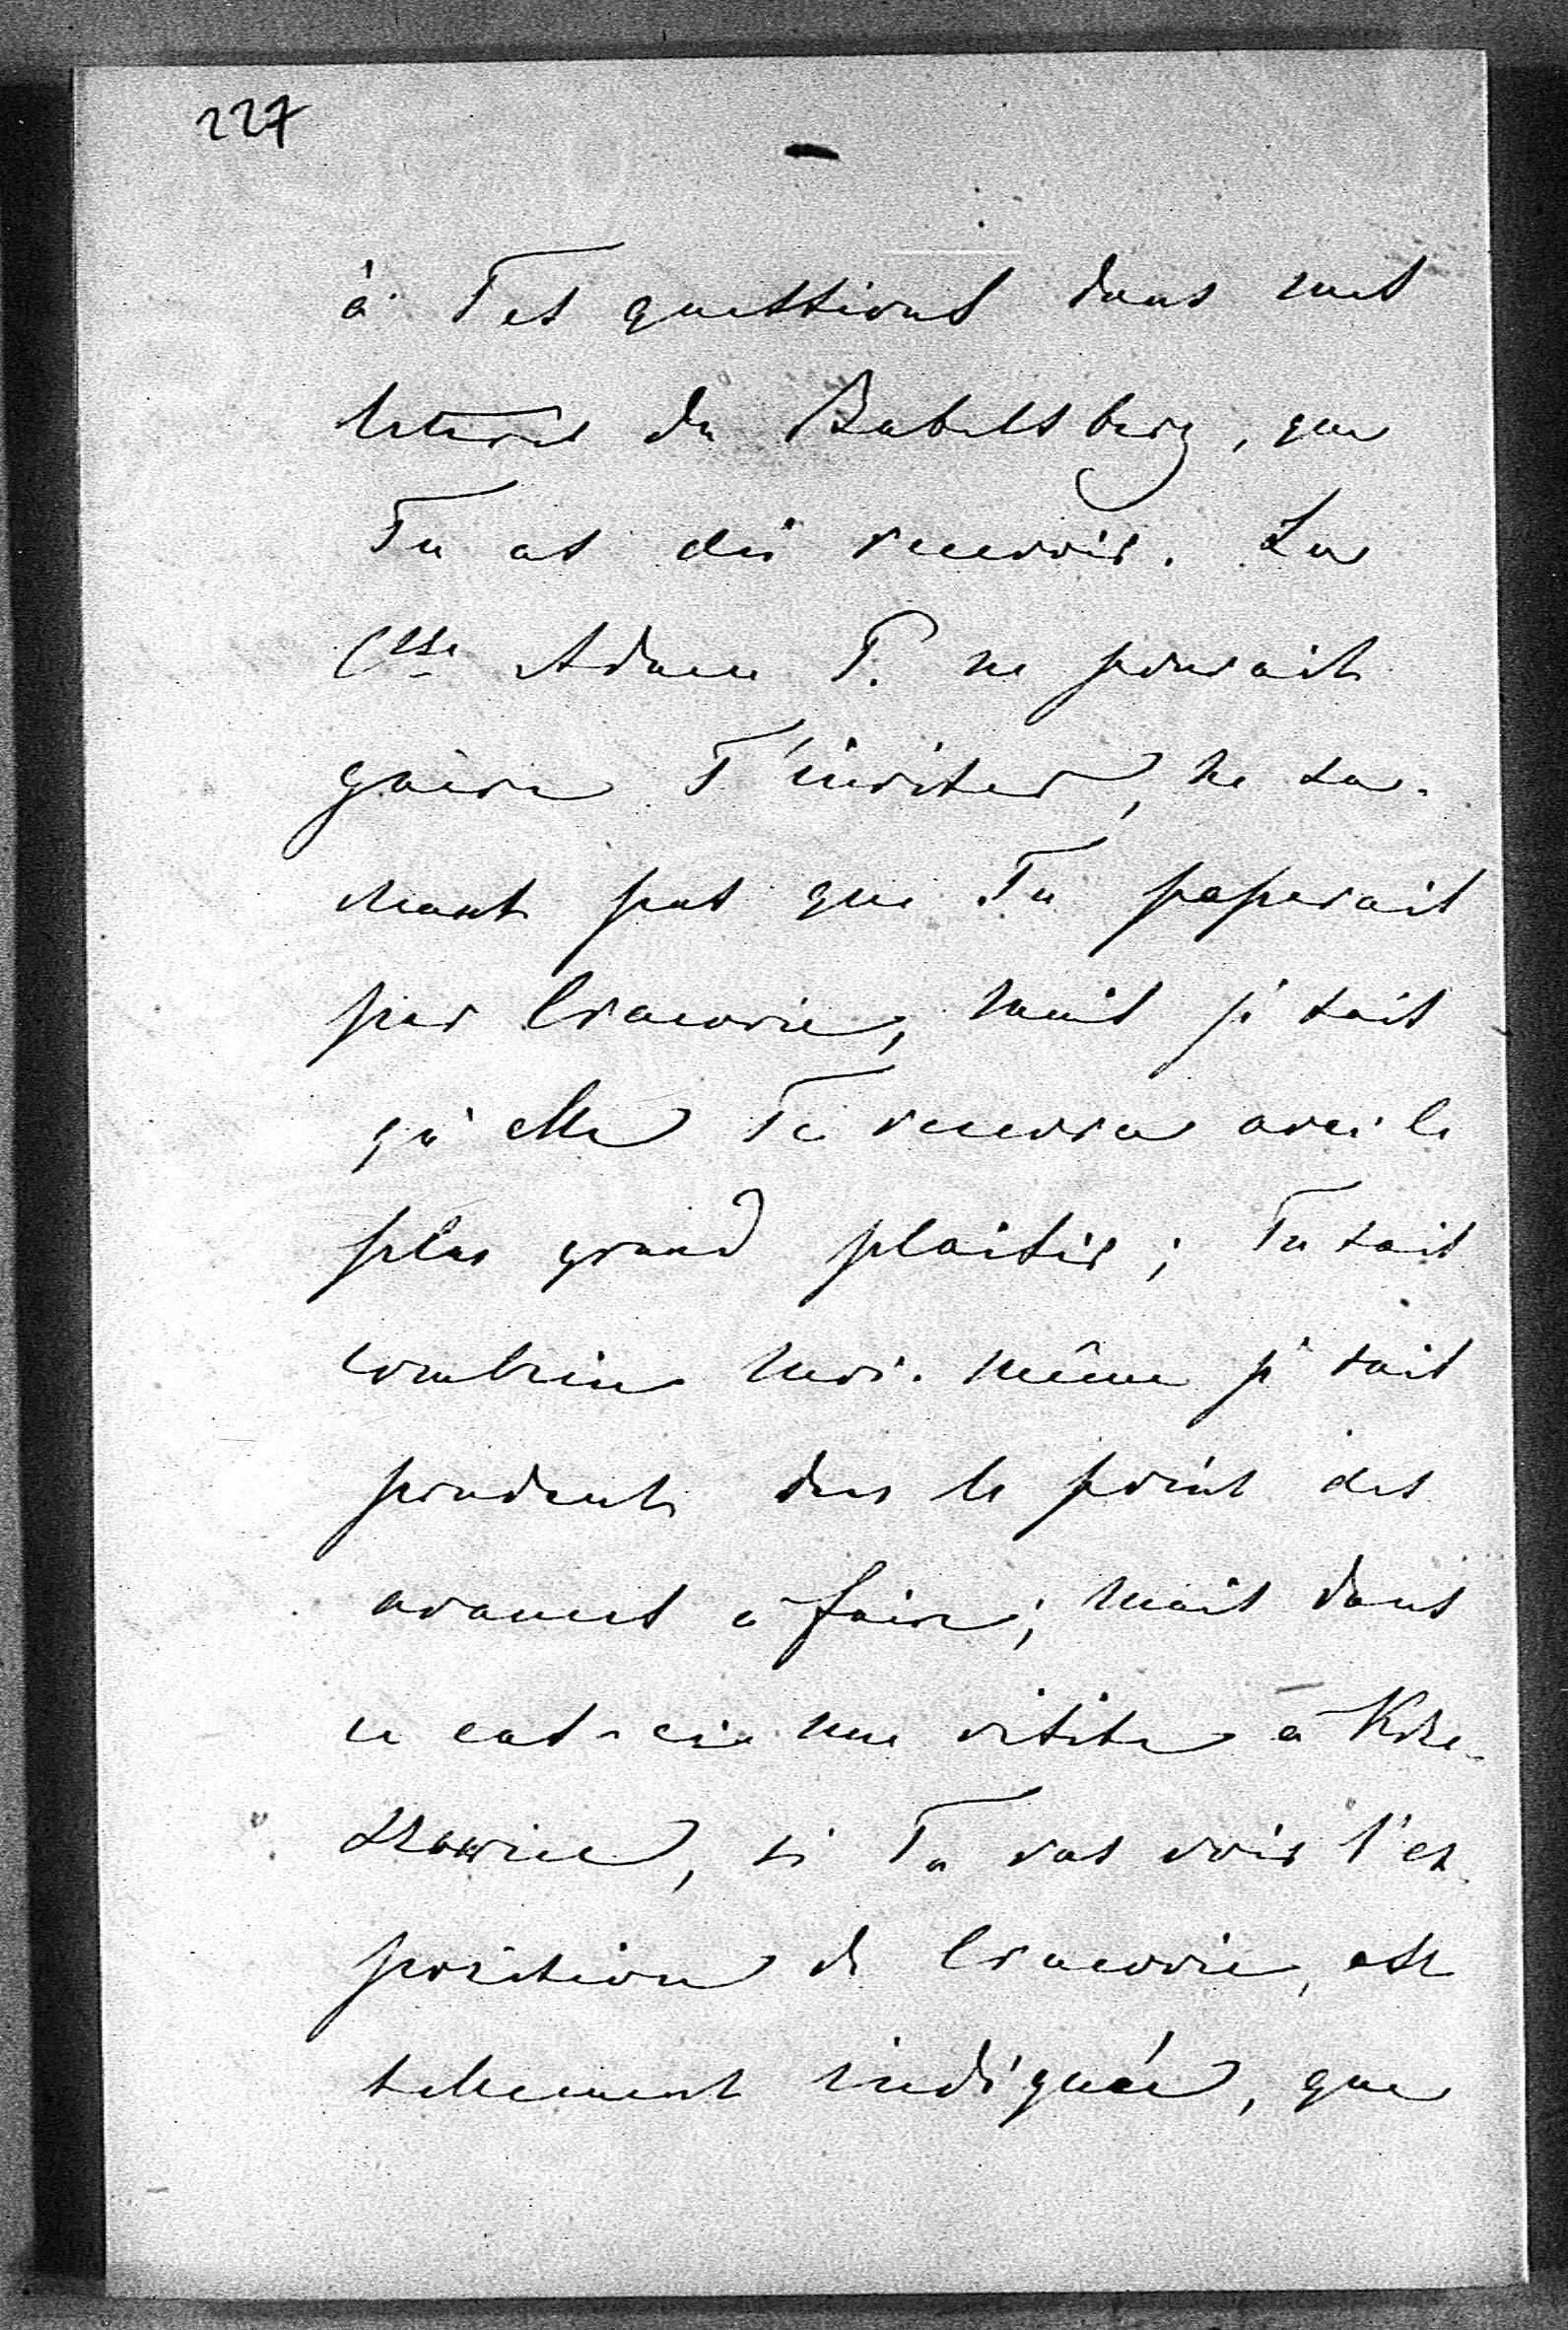 227
à Tes questions dans mes
lettres du Babelsberg, que
Tu as dû recevoir. La
Ctsse Adam P. ne pouvait
guère T'inviter, ne sa-
chant pas que Tu passerais
par Cracovie, mais je sais
qu'elle Te recevra avec le
plus grand plaisir; Tu sais
combien moi-même je suis
prudent sur le point des
avances à faire; mais dans
ce cas-ci une visite à Krze-
szowice, si Tu vas voir l'ex-
position de Cracovie, est
tellement indiquée, que